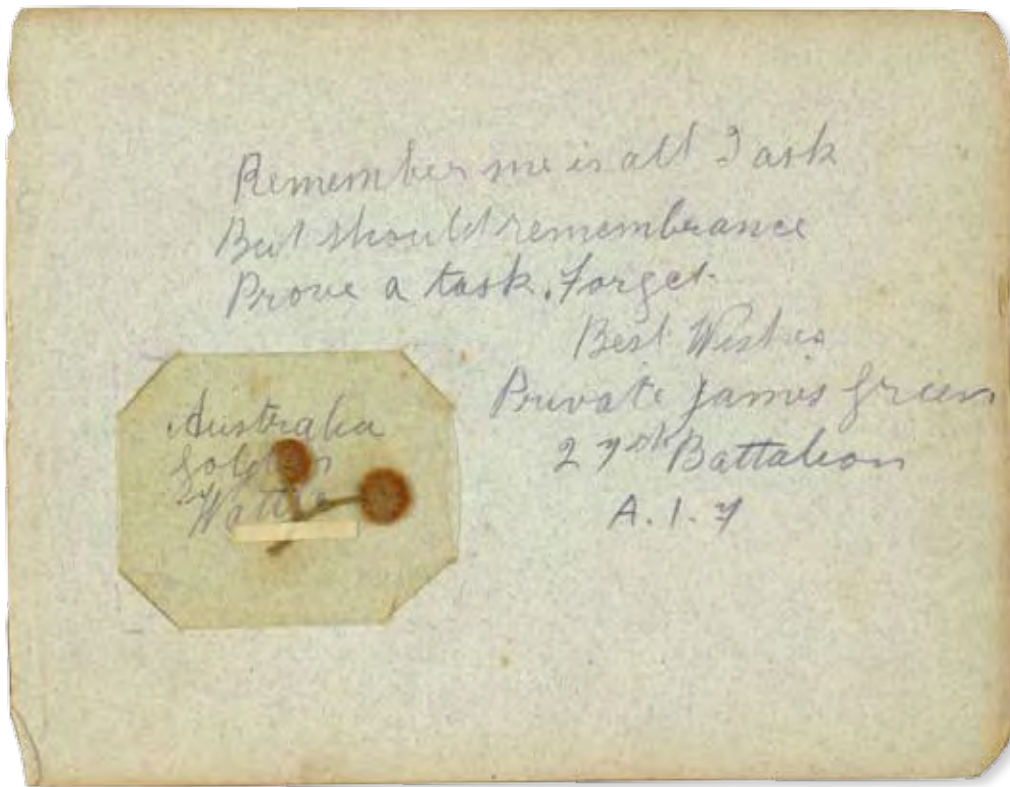 Remember me is all I ask
But should remembrance
Prove a task. Forget.
Best Wishes
Private James Green
27th Battalion
A.I.F
Australia
Golden
Wattle